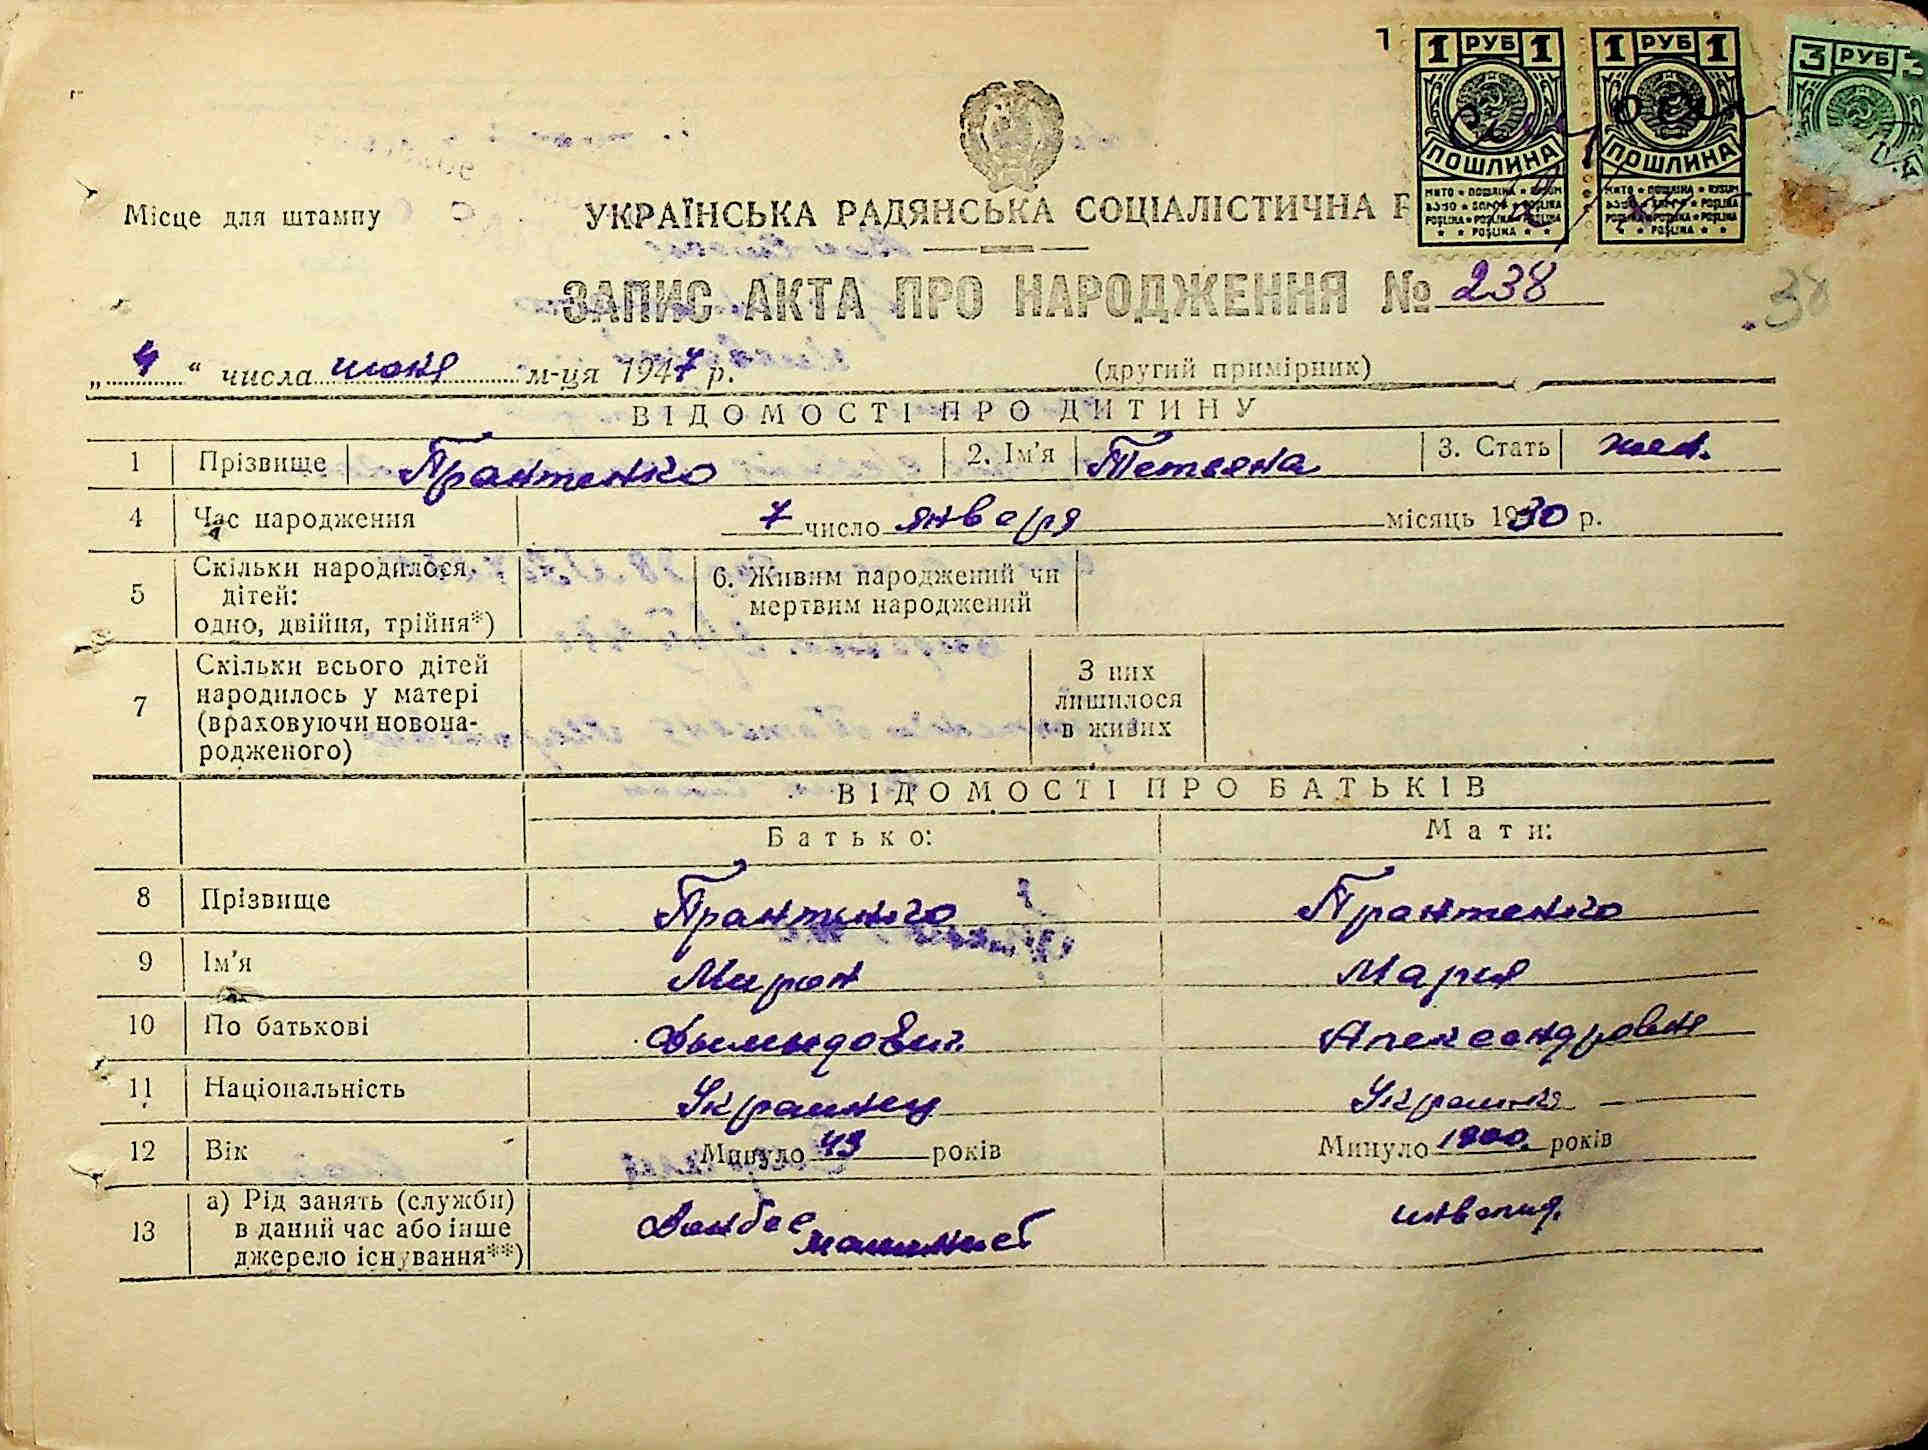 1 РУБ 1
1 РУБ 1
3 РУБ 3
ПОШЛИНА
ПОШЛИНА
МИТО ★ ПОШЛІНА ★ RUSUM
POŞLINA
Місце для штампу
УКРАЇНСЬКА РАДЯНСЬКА СОЦІАЛІСТИЧНА Р
ЗАПИС АКТА ПРО НАРОДЖЕННЯ № 238
38
„4“ числа июня м-ця 1947 р. (другий примірник)
ВІДОМОСТІ ПРО ДИТИНУ
1 Прізвище Прантенко 2. Ім'я Татьяна 3. Стать жен.
4 Час народження 7 число января місяць 1930 р.
5 Скільки народилося дітей: одно, двійня, трійня*) 6. Живим народжений чи мертвим народжений
7 Скільки всього дітей народилось у матері (враховуючи новона-родженого) З них лишилося в живих
ВІДОМОСТІ ПРО БАТЬКІВ
Батько: Мати:
8 Прізвище Прантенко Прантенко
9 Ім'я Мирон Мария
10 По батькові Александровня
11 Національність Украинец Украинка
12 Вік Минуло 43 років Минуло 1900. років
13 а) Рід занять (служби) в даний час або інше джерело існування**) машинист инвалид.